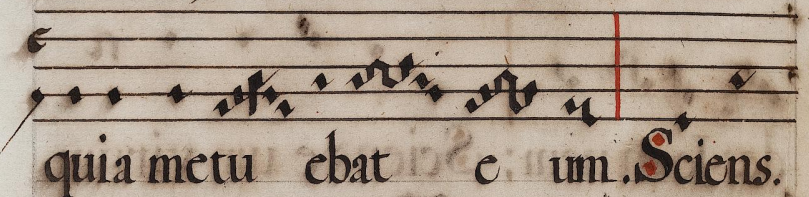 quia metu ebat e um. Sciens.